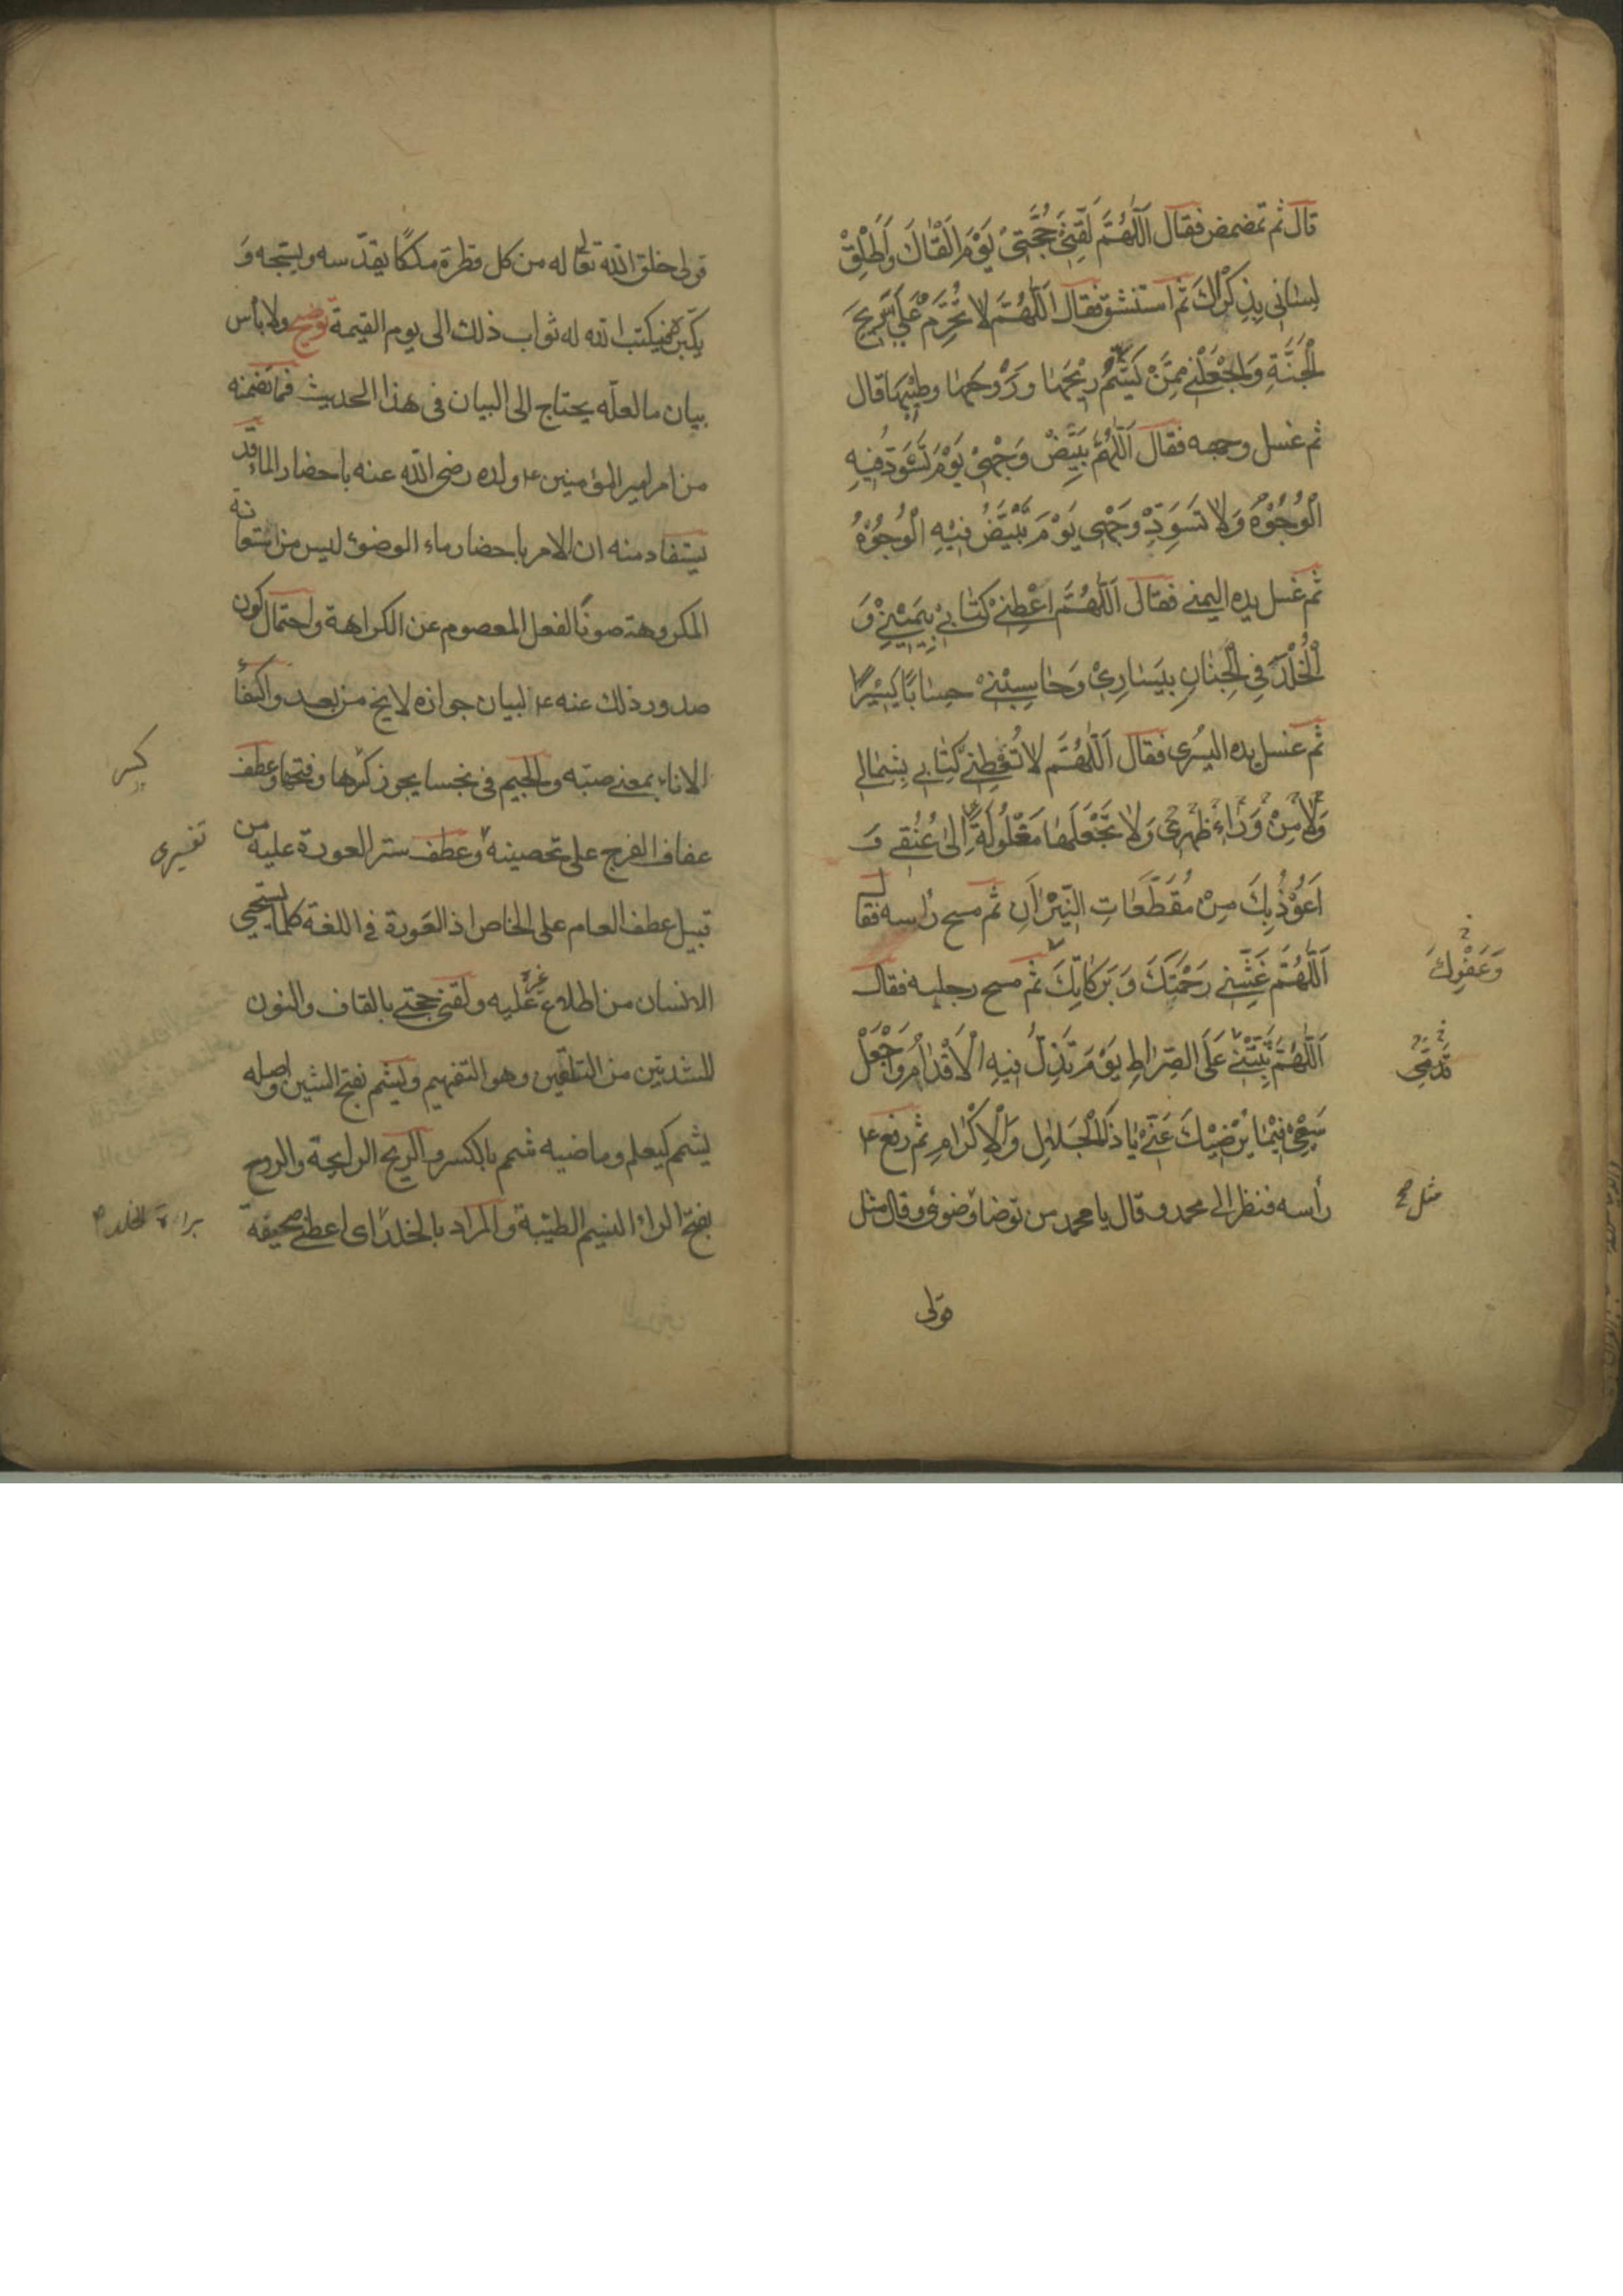 قال ثم تمضمض فقال اَللّٰهُمَّ لَقِّنّی حُجَّتِیْ یَوْمَ اَلْقٰاكَ وَاَطْلِقْ
لِسٰانی بِذِكْرٰكَ ثم استنشق فقال اَللّٰهُمَّ لا تُحَرِّمْ عَلَیَّ رِیحَ
الْجَنَّةِ وَاجْعَلْنی مِمَّنْ یَشَمُّ رِیْحَهٰا وَرَوْحَهٰا وطِیْبِهٰا قال
ثم غسل وجهه فقال اَللّٰهُمَّ بَیِّضْ وَجْهِیْ یَوْمَ تَسْوَدُّ فِیْهِ
الْوُجُوْهُ وَلا تُسَوِّدْ وَجْهِی یَوْمَ تَبْیَضُّ فِیْهِ الْوُجُوْهُ
ثم غسل یده الیمنی فقال اَللّٰهُمَّ اَعْطِنی كتٰابِیْ بِیَمِیْنِیْ وَ
الْخُلْدَ فِی الْجِنٰانِ بِیَسٰارِیْ وَحٰاسِبْنِیْ حِسٰابًا یَسِیْرًا
ثم غسل یده الیسری فقال اَللّٰهُمَّ لا تُعْطِنِی كِتٰابی بِشِمٰالی
وَلا مِنْ وَرٰاءِ ظَهْرِی وَلا تَجْعَلْهٰا مَغْلُولَةً اِلیٰ عُنُقی وَ
اَعُوْذُ بِكَ مِنْ مُقَطَّعٰاتِ النِّیْرٰانِ ثم مسح رأسه فقال
اَللّٰهُمَّ غَشِّنی رَحْمَتَكَ وَبَرَكٰاتِكَ ثم مسح رجلیه فقال
وَعَفْوِكَ
اَللّٰهُمَّ ثَبِّتْنِیْ عَلَی الصِّرٰاطِ یَوْمَ تَزِلُّ فِیهِ الْاَقْدٰامُ وَاجْعَلْ
قَدَمَیَّ
سَعْیِیْ فِیْمٰا یُرْضِیْكَ عَنِّیْ یٰا ذَا الْجَلٰالِ وَالْاِكْرٰامِ ثم رفع ع
رأسه فنظر الی محمد وقال یا محمد من توضأ وضوئی وقال مثل
مثل صح
قولی
قولی خلق الله تعالی له من كل قطرة ملكًا یقدّسه ویسبّحه وَ
یكبّره فیكتب الله له ثواب ذلك الی یوم القیمة توضیح ولا بأس
ببیان ما لعلّه یحتاج الی البیان فی هذا الحدیث فما تضمنه
من امر امیر المؤمنین ع ولده رضی الله عنه باحضار الماء قد
یستفاد منه ان الامر باحضار ماء الوضوء لیس من استعانة
المكروهة صونًا لفعل المعصوم عن الكراهة واحتمال كون
صدور ذلك عنه ع لبیان جوازه لا یخ من بعد واكفأ
الاناء بمعنی صبّه والجیم فی نجسا یجوز كسرها وفتحها وعطف
كسر
عفاف الفرج علی تحصینه وعطف ستر العورة علیه من
تفسیری
قبیل عطف العام علی الخاص اذ العَورة فی اللغة كلما یستحیی
الانسان من اطلاع غیره علیه ولقنی حجتی بالقاف والنون
المشددتین من التلقین وهو التفهیم ویشم بفتح الشین واصله
یشمم كیعلم وماضیه شمم بالكسر والریح الرایحة والروح
بفتح الراء النسیم الطیّبة والمراد بالخلد ای اعطنی صحیفة
براءة الخلد